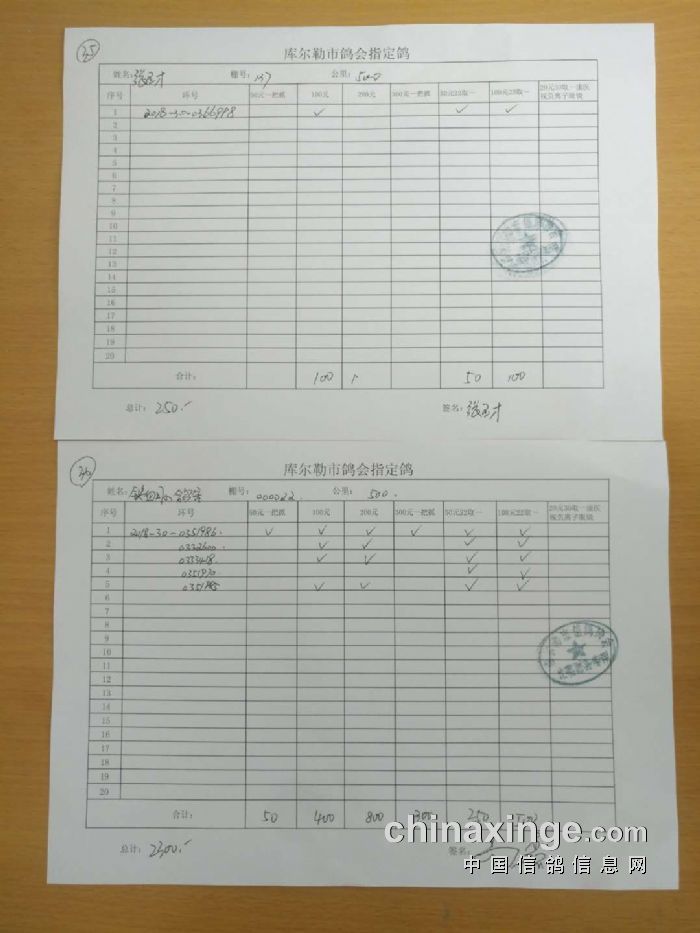 35
库尔勒市鸽会指定鸽
姓名: 棚号: 137 公里: 500
序号 环号 50元一把抓 100元 200元 300元一把抓 50元22取一 100元22取一 20元30取一
1 2018-30-0366998 ✓ ✓ ✓
2
3
4
5
6
7
8
9
10
11
12
13
14
15
16
17
18
19
20
合计: 100 50 100
总计: 250.- 签名:
36
库尔勒市鸽会指定鸽
姓名: 棚号: 000022. 公里: 500.
序号 环号 50元一把抓 100元 200元 300元一把抓 50元22取一 100元22取一 20元30取一
1 2018-30-0351986. ✓ ✓ ✓ ✓ ✓ ✓
2 0332600 ✓ ✓ ✓ ✓
3 0333418 ✓ ✓ ✓ ✓
4 0351970 ✓ ✓
5 ✓ ✓ ✓ ✓
6
7
8
9
10
11
12
13
14
15
16
17
18
19
20
合计: 50 400 800 300 250 500
总计: 2300.- 签名:
chinaxinge.com
中国信鸽信息网